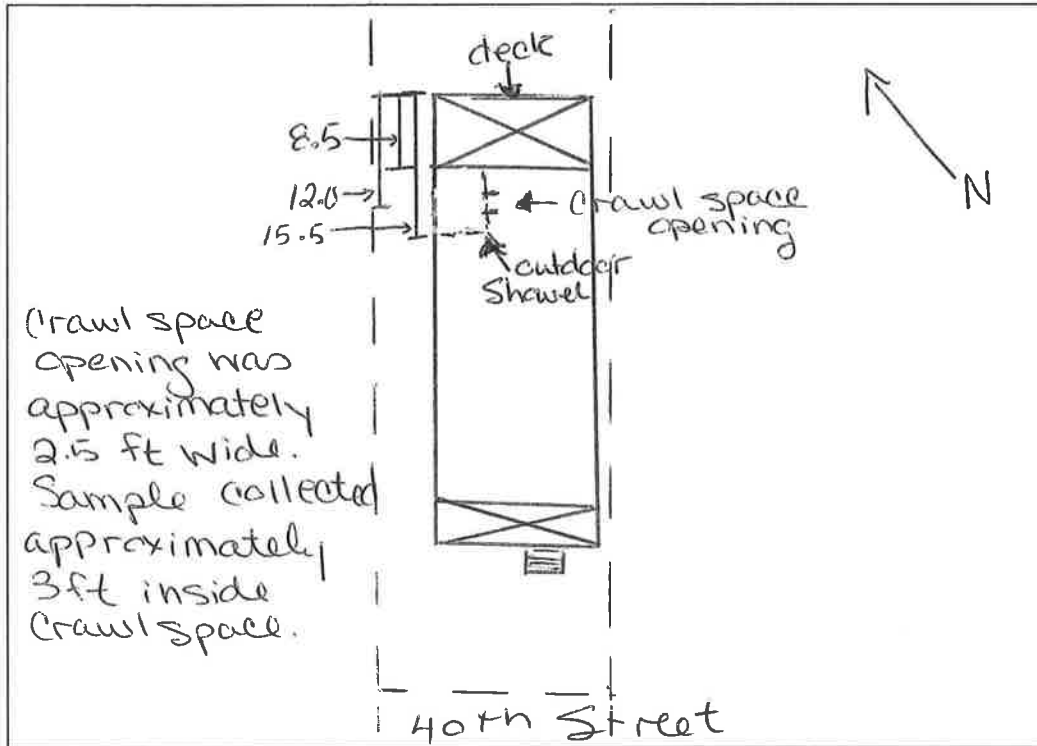 deck
8.5
12.0
15.5
Crawl space
opening
outdoor
Shower
N
Crawl space
opening was
approximately
2.5 ft wide.
Sample collected
approximately
3ft inside
Crawl space.
40th Street